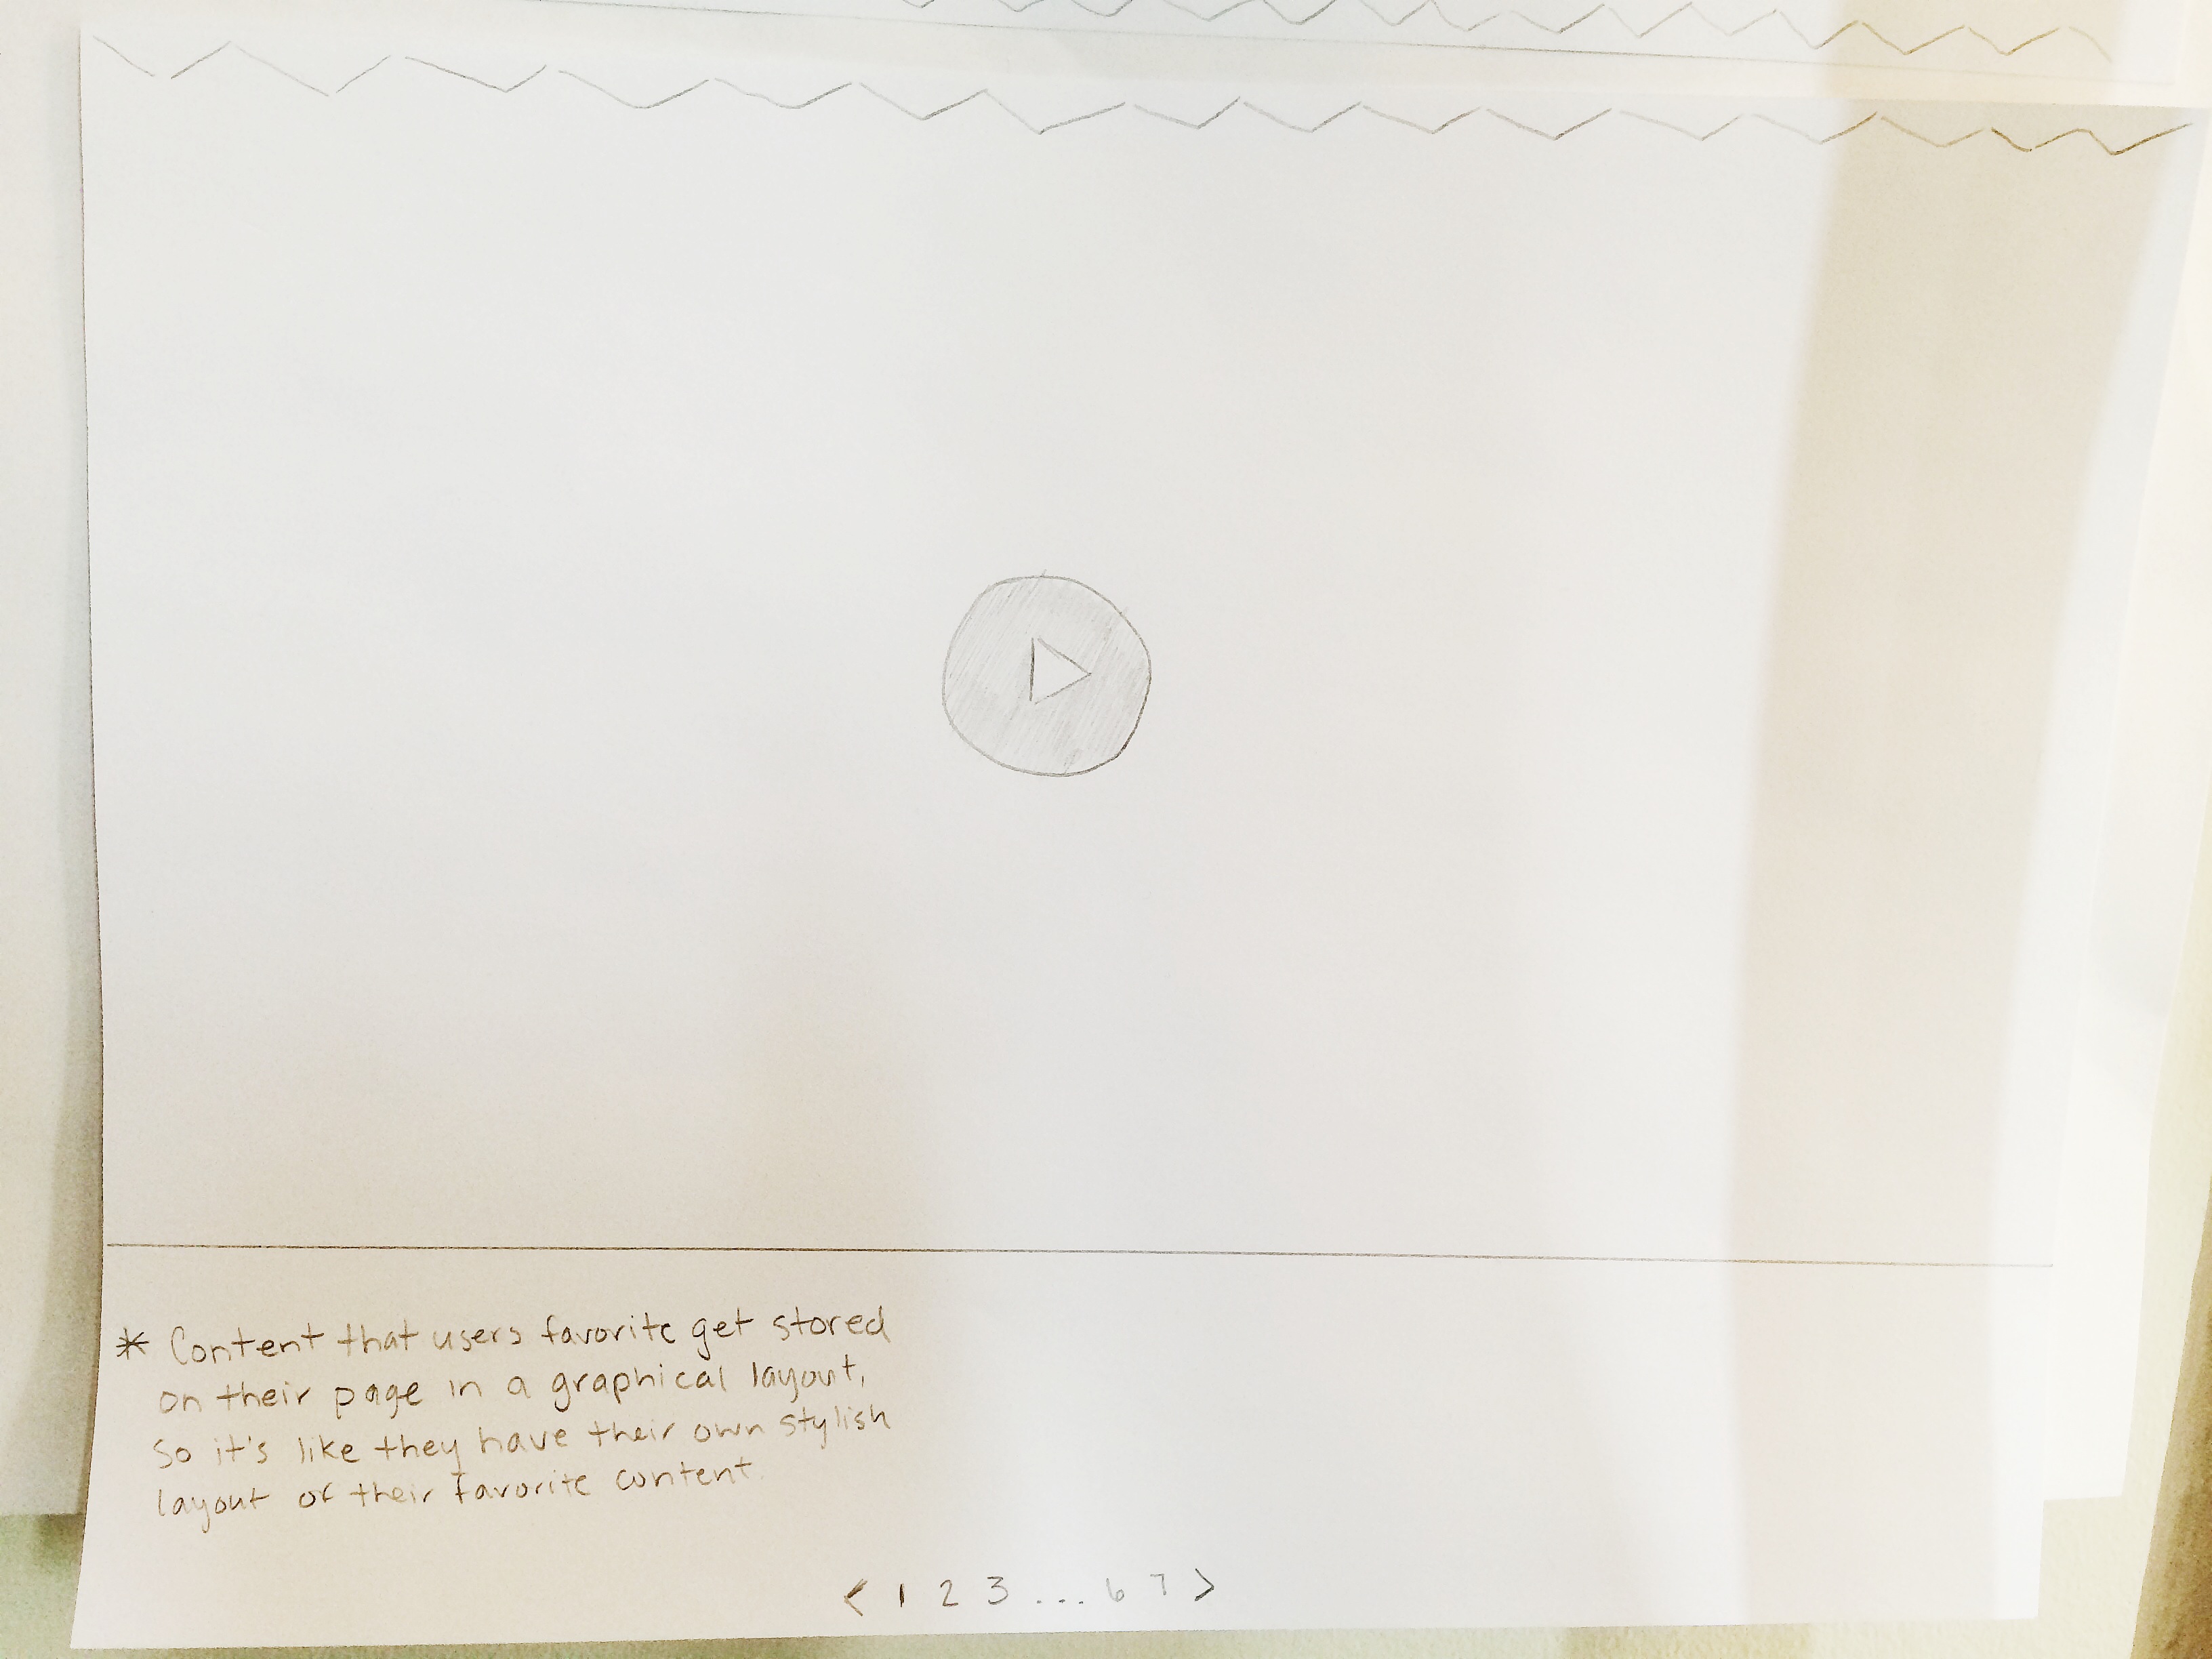 * Content that users favorite get stored
on their page in a graphical layout,
So it's like they have their own stylish
layout of their favorite content.
< 1 2 3 ... 6 7 >